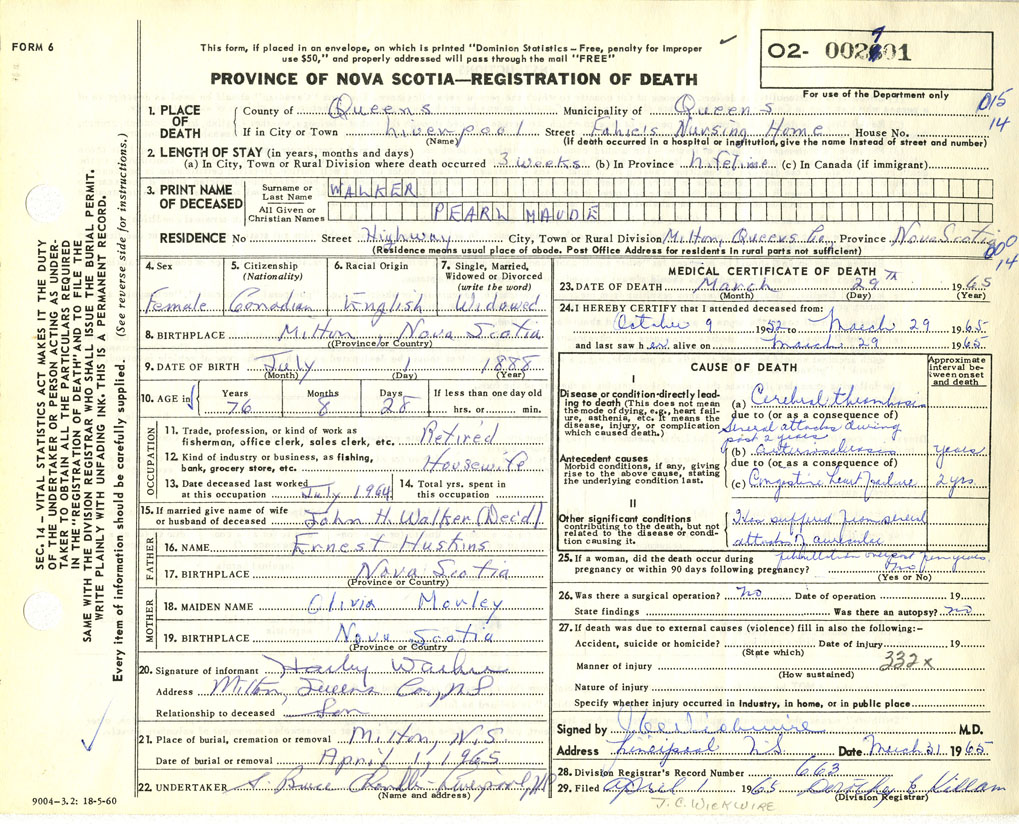 FORM 6
This form, if placed in an envelope, on which is printed "Dominion Statistics – Free, penalty for improper
use $50," and properly addressed will pass through the mail "FREE"
PROVINCE OF NOVA SCOTIA—REGISTRATION OF DEATH
02- 002
01
For use of the Department only
015
14
1. PLACE OF DEATH
County of Queens Municipality of Queens
If in City or Town Liverpool Street Fahie's Nursing Home House No.
(Name) (If death occurred in a hospital or institution, give the name instead of street and number)
2. LENGTH OF STAY (in years, months and days)
(a) In City, Town or Rural Division where death occurred 3 weeks (b) In Province Lifetime (c) In Canada (if immigrant)
3. PRINT NAME OF DECEASED
Surname or Last Name WALKER
All Given or Christian Names PEARL MAUDE
RESIDENCE No Street Highway City, Town or Rural Division Milton, Queens Co. Province Nova Scotia
(Residence means usual place of abode. Post Office Address for residents in rural parts not sufficient)
14
4. Sex Female
5. Citizenship (Nationality) Canadian
6. Racial Origin English
7. Single, Married, Widowed or Divorced (write the word) Widowed
8. BIRTHPLACE Milton, Nova Scotia
(Province/or Country)
9. DATE OF BIRTH July 1 1888
(Month) (Day) (Year)
10. AGE in Years 76 Months 8 Days 28 If less than one day old hrs. or min.
OCCUPATION
11. Trade, profession, or kind of work as fisherman, office clerk, sales clerk, etc. Retired
12. Kind of industry or business, as fishing, bank, grocery store, etc. Housewife
13. Date deceased last worked at this occupation July 1964
14. Total yrs. spent in this occupation
15. If married give name of wife or husband of deceased John H. Walker (Dec'd)
FATHER
16. NAME Ernest Huskins
17. BIRTHPLACE Nova Scotia
(Province or Country)
MOTHER
18. MAIDEN NAME Olivia
19. BIRTHPLACE Nova Scotia
(Province or Country)
20. Signature of informant Harley Walker
Address Milton, Queens Co., N.S.
Relationship to deceased Son
21. Place of burial, cremation or removal Milton, N.S.
Date of burial or removal April 1, 1965
22. UNDERTAKER S. Bruce Liverpool, NS
(Name and address)
9004-3.2: 18-5-60
MEDICAL CERTIFICATE OF DEATH
23. DATE OF DEATH March 29 1965
(Month) (Day) (Year)
24. I HEREBY CERTIFY that I attended deceased from:
October 9 1952 to March 29 1965
and last saw her alive on March 29 1965
CAUSE OF DEATH
Approximate interval between onset and death
I
Disease or condition directly leading to death (This does not mean the mode of dying, e.g., heart failure, asthenia, etc. It means the disease, injury, or complication which caused death.)
(a) Cerebral thrombosis
due to (or as a consequence of)
Several attacks during
past 2 years
Antecedent causes
Morbid conditions, if any, giving rise to the above cause, stating the underlying condition last.
(b) arteriosclerosis years
due to (or as a consequence of)
(c) Congestive heart failure 2 yrs
II
Other significant conditions contributing to the death, but not related to the disease or condition causing it.
Has suffered from several
attacks of auricular
fibrillation over past few years
25. If a woman, did the death occur during pregnancy or within 90 days following pregnancy? no
(Yes or No)
26. Was there a surgical operation? no Date of operation 19
State findings Was there an autopsy? no
27. If death was due to external causes (violence) fill in also the following:-
Accident, suicide or homicide? Date of injury 19
(State which)
Manner of injury 332x
(How sustained)
Nature of injury
Specify whether injury occurred in industry, in home, or in public place
Signed by J C Wickwire M.D.
Address Liverpool N.S. Date March 31 1965
28. Division Registrar's Record Number 663
29. Filed April 1 1965 Dorothy E Killam
(Division Registrar)
J. C. WICKWIRE
SEC. 14 – VITAL STATISTICS ACT MAKES IT THE DUTY
OF THE UNDERTAKER OR PERSON ACTING AS UNDER-
TAKER TO OBTAIN ALL THE PARTICULARS REQUIRED
IN THE "REGISTRATION OF DEATH" AND TO FILE THE
SAME WITH THE DIVISION REGISTRAR WHO SHALL ISSUE THE BURIAL PERMIT.
WRITE PLAINLY WITH UNFADING INK. THIS IS A PERMANENT RECORD.
Every item of information should be carefully supplied. (See reverse side for instructions.)